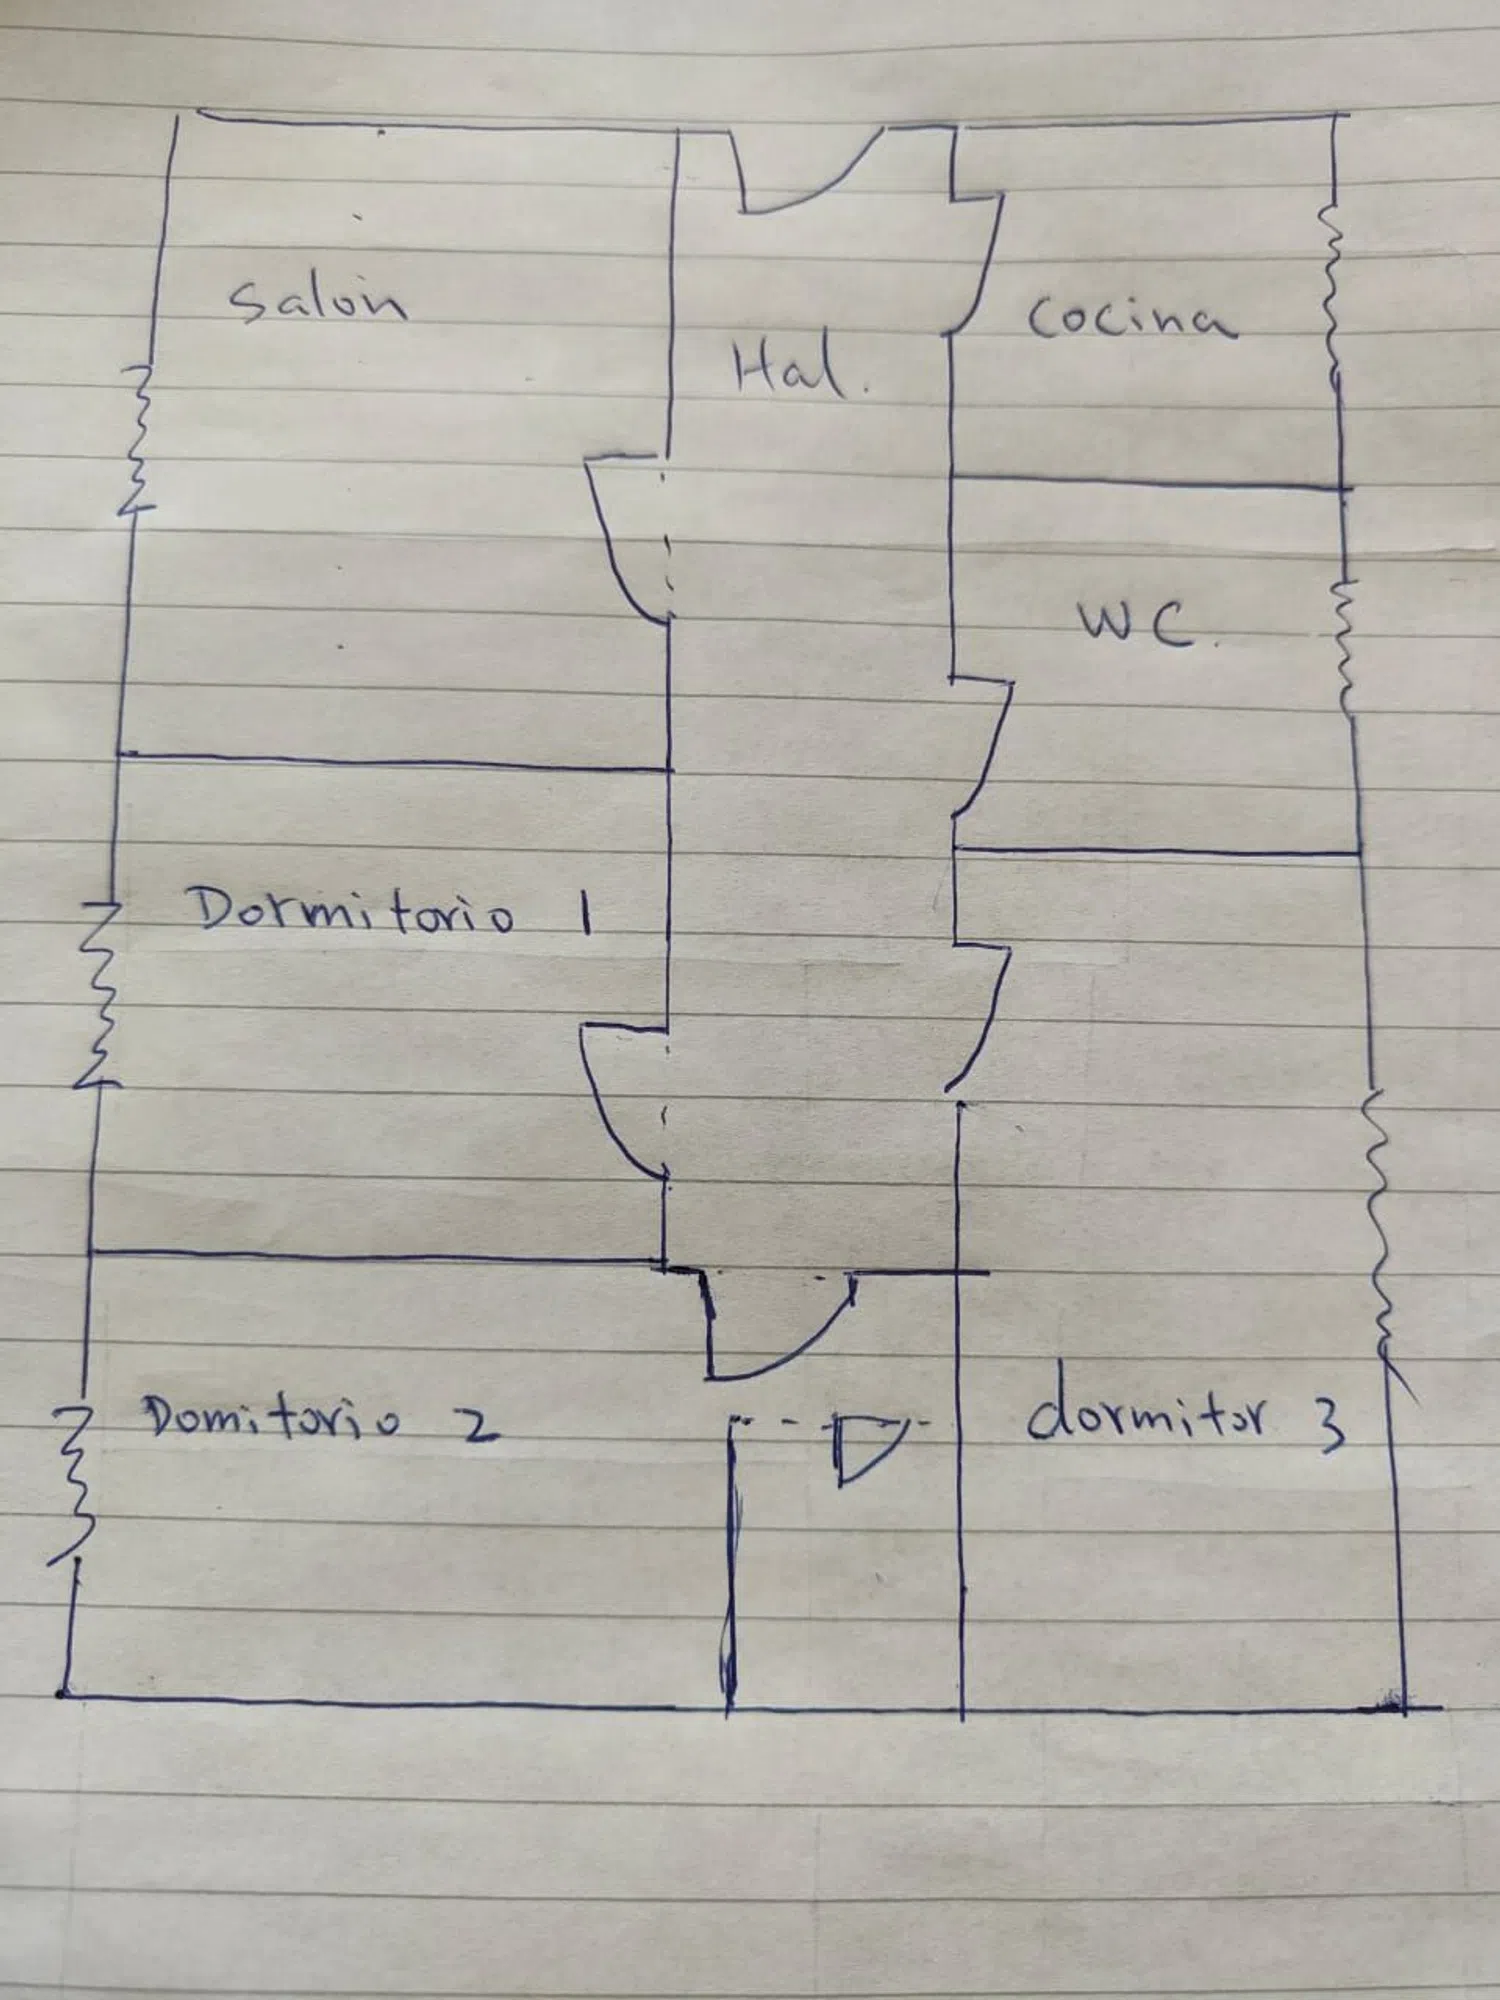 Salón
Hal.
Cocina
WC.
Dormitorio 1
Domitorio 2
dormitor 3